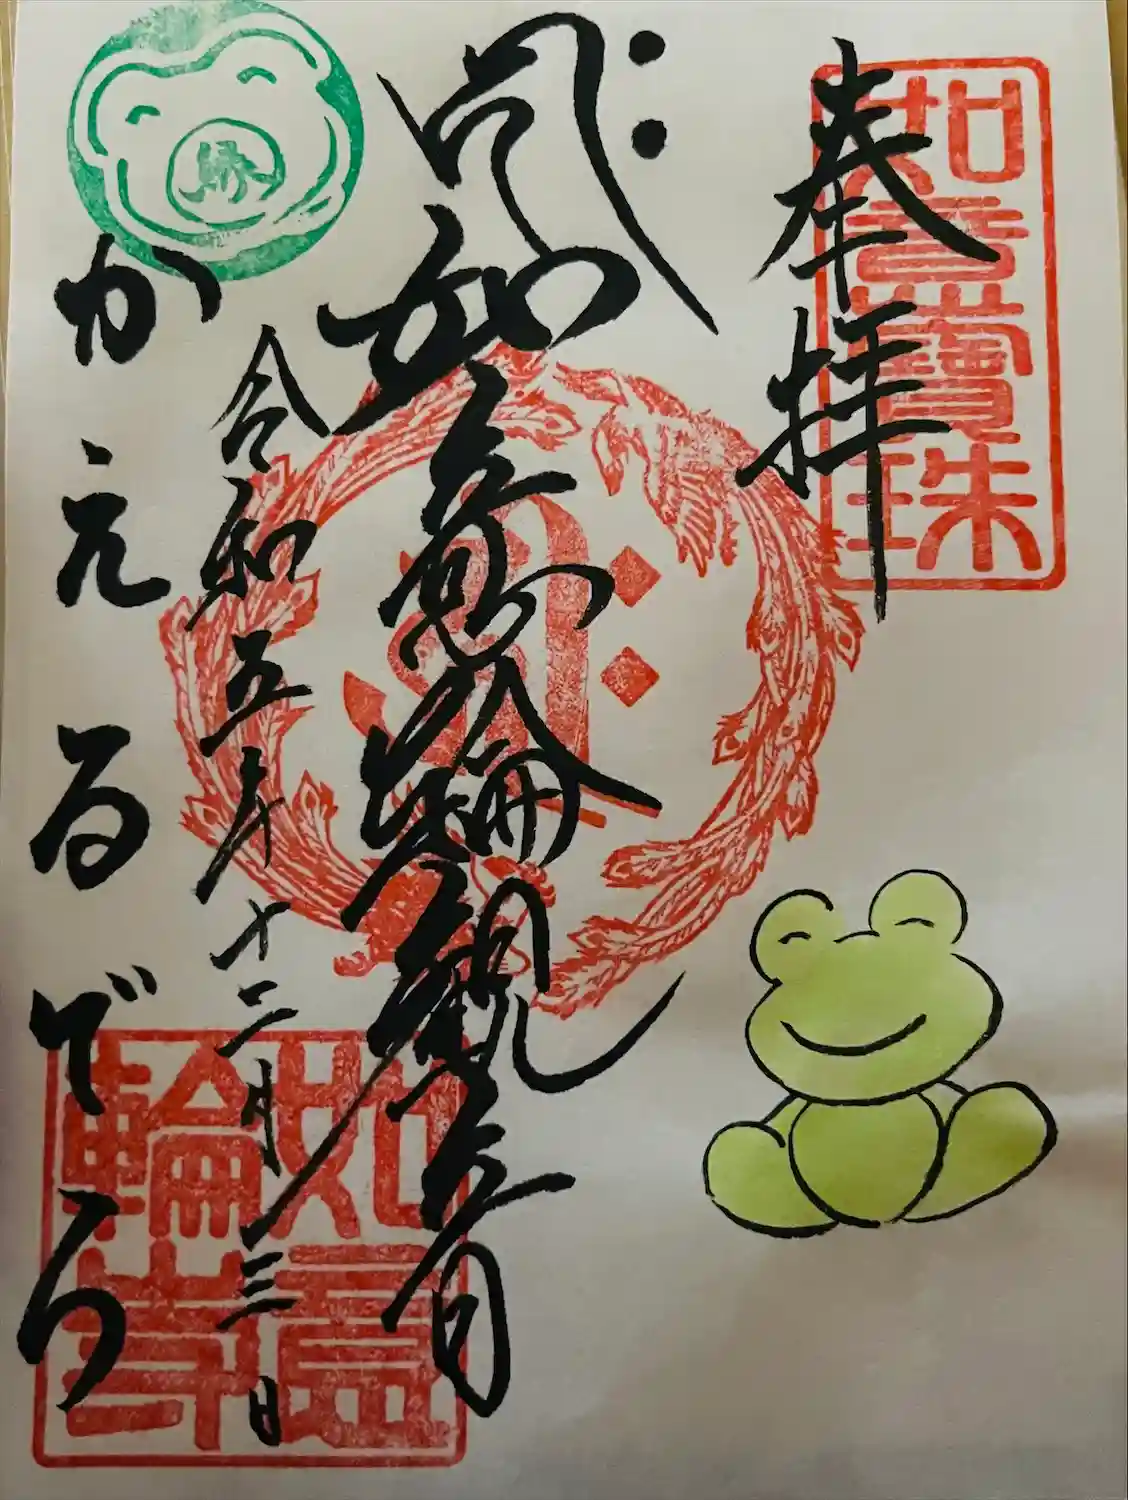 奉拝
如意寶珠
如意輪観音
令和五年十二月三日
かえるでら
如意輪寺
縁